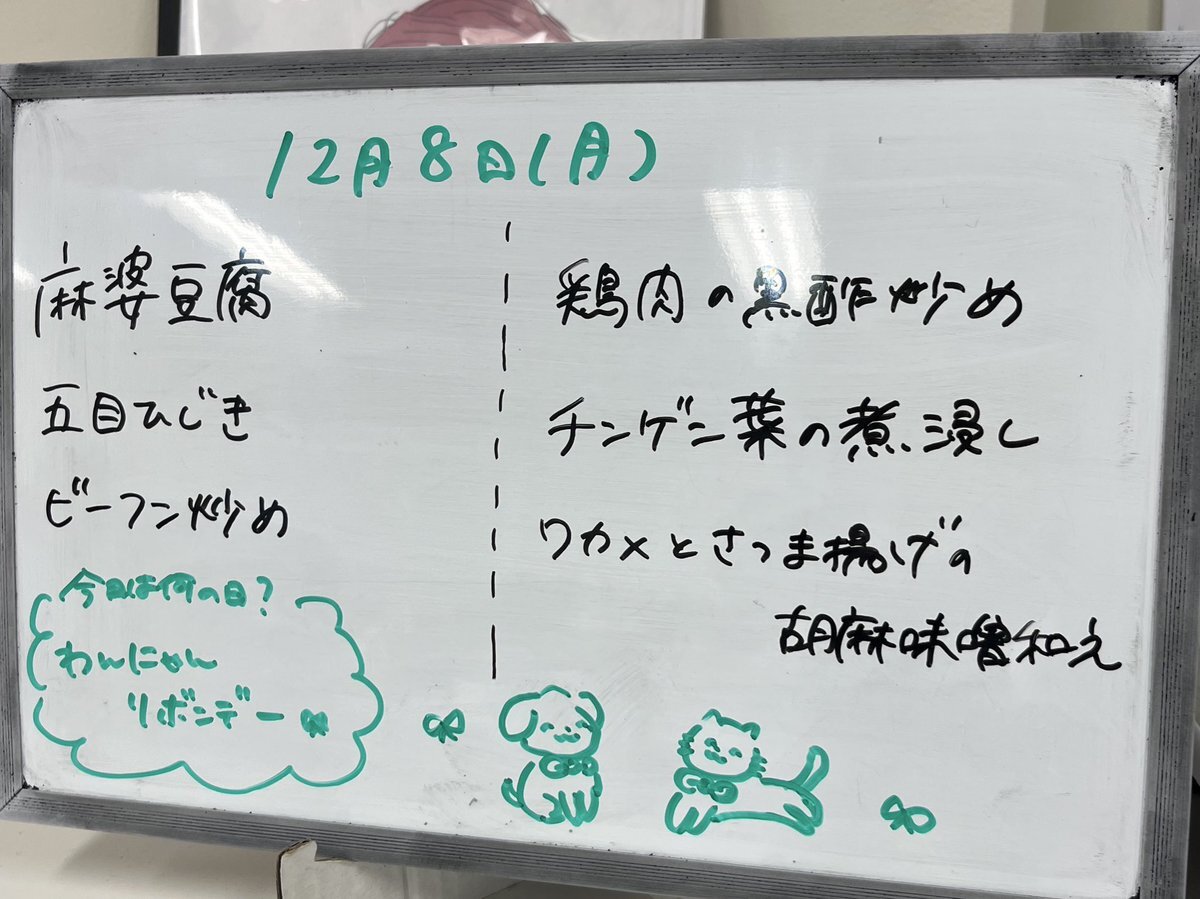 12月8日(月)
麻婆豆腐
五目ひじき
ビーフン炒め
今日は何の日?
わんにゃん
リボンデー
鶏肉の黒酢炒め
チンゲン菜の煮浸し
ワカメとさつま揚げの
胡麻味噌和え